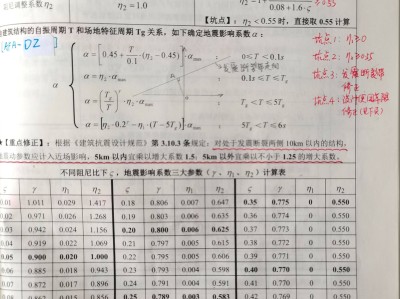 尼调整系数 η2
η2=1.0
0.08+1.6·ς
【坑点】: η2<0.55 时，直接取 0.55 计算
建筑结构的自振周期 T 和场地特征周期 Tg 关系，如下确定地震影响系数 α：
坑点1: η1≥0
α = [0.45 + T/0.1 (η2 − 0.45)] · αmax ： 0≤T<0.1s
坑点2: η2≥0.55
α = η2 · αmax ： 0.1s≤T≤Tg
坑点3: 发震断裂带
修正
α
α = (Tg/T)^γ · η2 · αmax ： Tg<T≤5Tg
α = [η2·0.2^γ − η1(T−5Tg)] · αmax ： 5Tg<T≤6s
★【重点修正】：根据《建筑抗震设计规范》第 3.10.3 条规定：对处于发震断裂两侧 10km 以内的结构，
地震动参数应计入近场影响，5km 以内宜乘以增大系数 1.5；5km 以外宜乘以不小于 1.25 的增大系数。
不同阻尼比下 ς，地震影响系数三大参数（γ、η1、η2）计算表
ς γ η1 η2 ς γ η1 η2 ς γ η1 η2
0.01 1.011 0.029 1.417 0.18 0.806 0.007 0.647 0.35 0.775 0 0.550
0.02 0.971 0.026 1.268 0.19 0.803 0.006 0.635 0.36 0.774 0 0.550
0.03 0.942 0.024 1.156 0.20 0.800 0.006 0.625 0.37 0.773 0 0.550
0.04 0.919 0.022 1.069 0.21 0.797 0.005 0.615 0.38 0.772 0 0.550
0.05 0.900 0.020 1.000 0.22 0.795 0.005 0.606 0.39 0.771 0 0.550
0.06 0.885 0.018 0.943 0.23 0.793 0.004 0.598 0.40 0.770 0 0.550
0.07 0.872 0.017 0.896 0.24 0.791 0.004 0.590 0.41 0.769 0 0.550
0.862 0.015 0.856 0.25 0.789 0.003 0.583 0.42 0.769 0 0.550